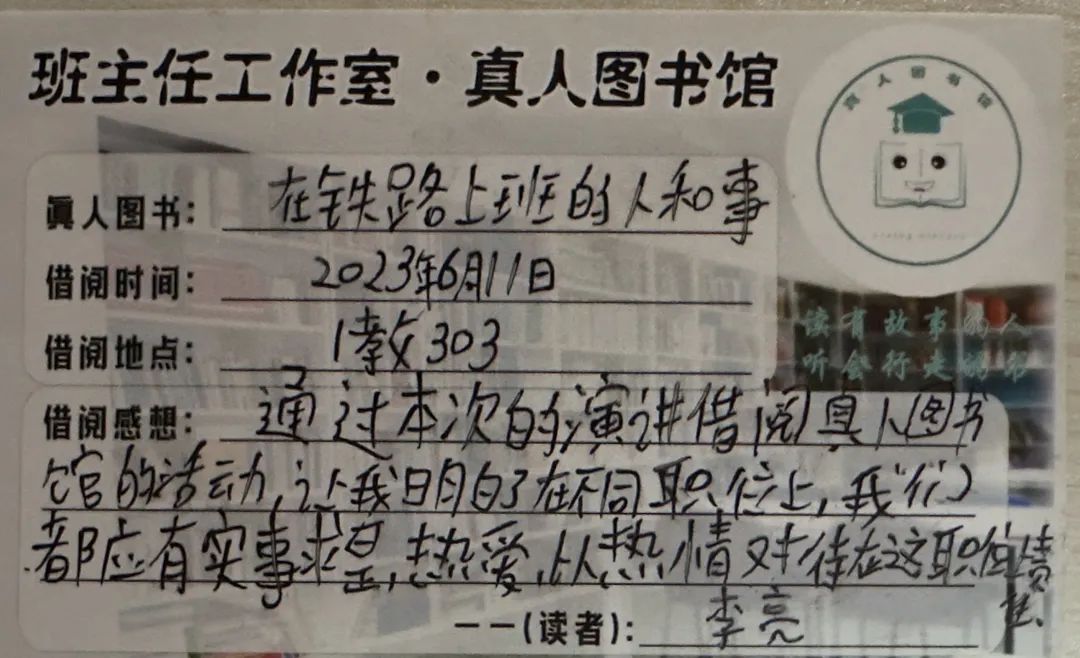 班主任工作室·真人图书馆
真人图书馆
真人图书： 在铁路上班的人和事
借阅时间： 2023年6月11日
借阅地点： 1教303
读有故事的人
听会行走的书
借阅感想： 通过本次的演讲借阅真人图书
馆的活动，让我明白了在不同职位上，我们
都应有实事求是，热爱，从热情对待在这职位
——(读者)： 李亮